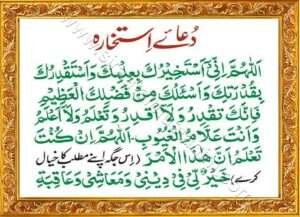 دُعائے اِستخارہ
اَللّٰهُمَّ اِنِّیْ اَسْتَخِیْرُكَ بِعِلْمِكَ وَاَسْتَقْدِرُكَ
بِقُدْرَتِكَ وَاَسْئَلُكَ مِنْ فَضْلِكَ الْعَظِیْمِ
فَاِنَّكَ تَقْدِرُ وَلَا اَقْدِرُ وَتَعْلَمُ وَلَا اَعْلَمُ
وَاَنْتَ عَلَّامُ الْغُیُوْبِ۔ اَللّٰهُمَّ اِنْ كُنْتَ
تَعْلَمُ اَنَّ هٰذَا الْاَمْرَ (اس جگہ اپنے مطلب کا خیال
کرے) خَیْرٌ لِّیْ فِیْ دِیْنِیْ وَمَعَاشِیْ وَعَاقِبَةِ